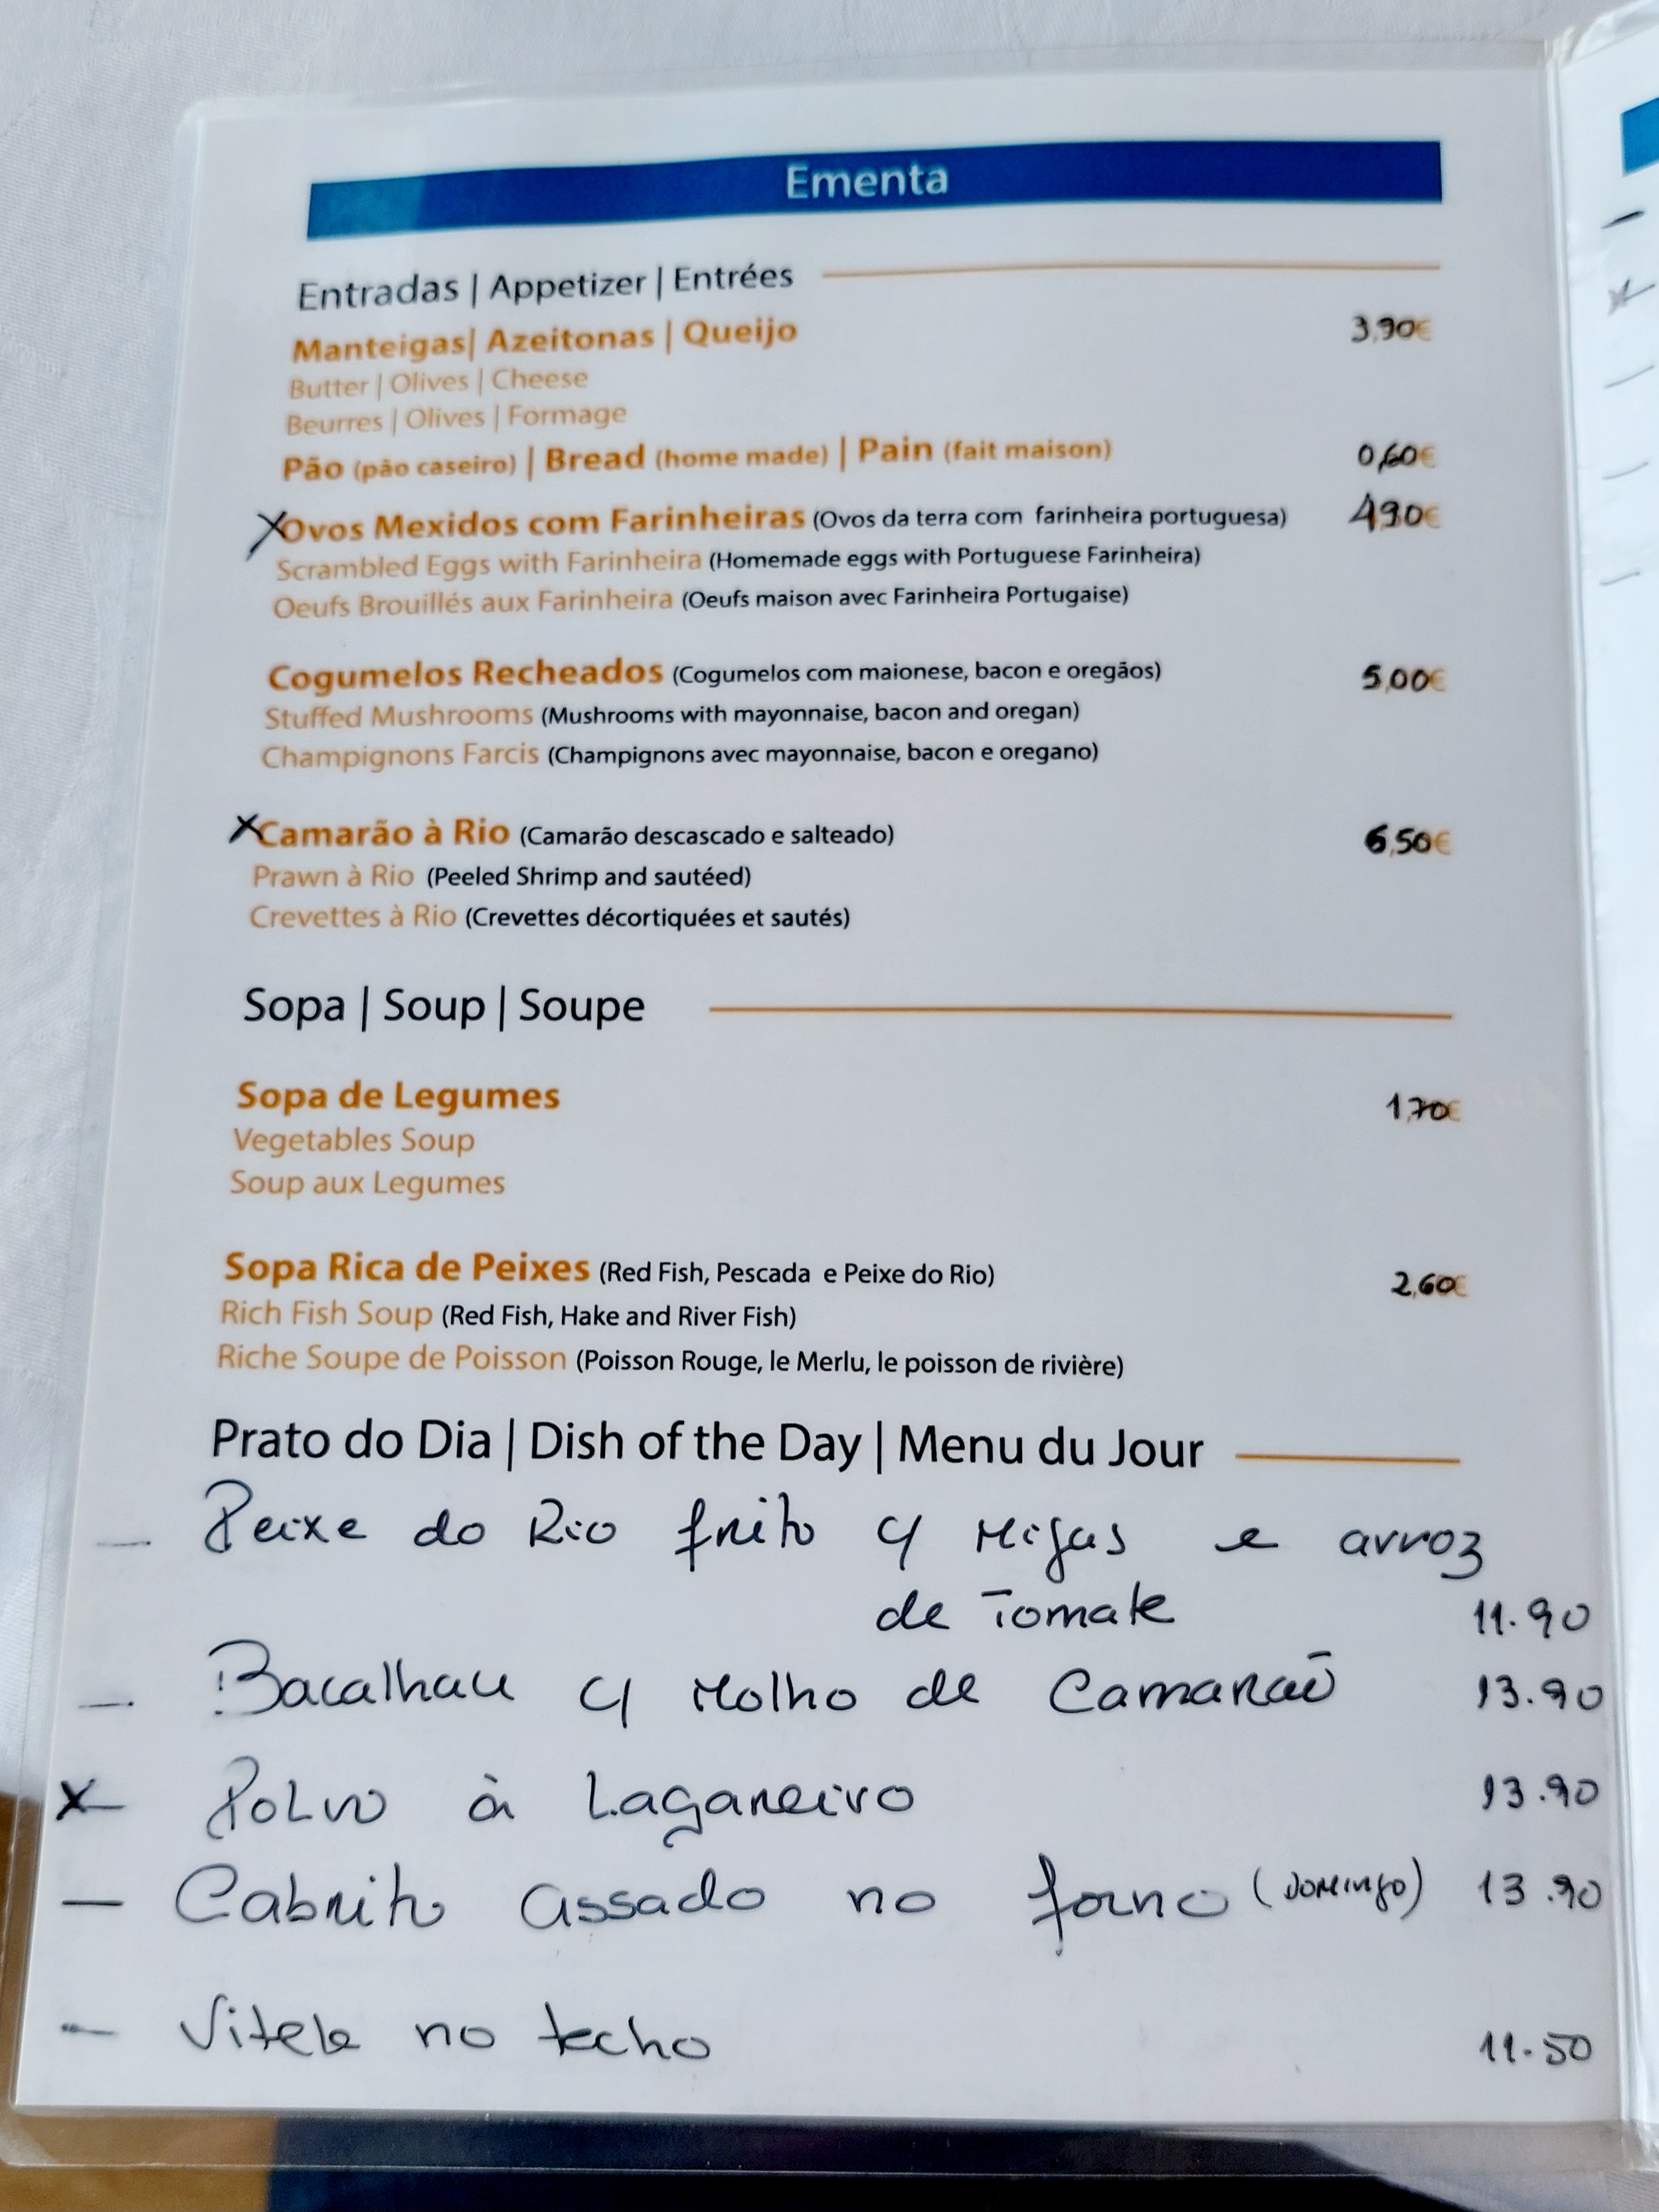 Ementa
Entradas | Appetizer | Entrées
Manteigas| Azeitonas | Queijo 3,90€
Butter | Olives | Cheese
Beurres | Olives | Formage
Pão (pão caseiro) | Bread (home made) | Pain (fait maison) 0,60€
X Ovos Mexidos com Farinheiras (Ovos da terra com farinheira portuguesa) 4,90€
Scrambled Eggs with Farinheira (Homemade eggs with Portuguese Farinheira)
Oeufs Brouillés aux Farinheira (Oeufs maison avec Farinheira Portugaise)
Cogumelos Recheados (Cogumelos com maionese, bacon e oregãos) 5,00€
Stuffed Mushrooms (Mushrooms with mayonnaise, bacon and oregan)
Champignons Farcis (Champignons avec mayonnaise, bacon e oregano)
X Camarão à Rio (Camarão descascado e salteado) 6,50€
Prawn à Rio (Peeled Shrimp and sautéed)
Crevettes à Rio (Crevettes décortiquées et sautés)
Sopa | Soup | Soupe
Sopa de Legumes 1,70€
Vegetables Soup
Soup aux Legumes
Sopa Rica de Peixes (Red Fish, Pescada e Peixe do Rio) 2,60€
Rich Fish Soup (Red Fish, Hake and River Fish)
Riche Soupe de Poisson (Poisson Rouge, le Merlu, le poisson de rivière)
Prato do Dia | Dish of the Day | Menu du Jour
— Peixe do Rio frito c/ Migas e arroz
de Tomate 11.90
— Bacalhau c/ Molho de Camarão 13.90
X— Polvo à Lagareiro 13.90
— Cabrito assado no forno (Domingo) 13.90
— Vitela no tacho 11.50